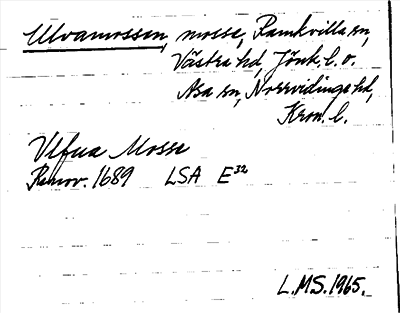 Ulvamossen, mosse, Ramkvilla sn,
Västra hd, Jönk. l. o.
Asa sn, Norrvidinge hd,
Kron. l.
Ulfua Mosse
Renov. 1689 LSA E32
L.M.S. 1965.